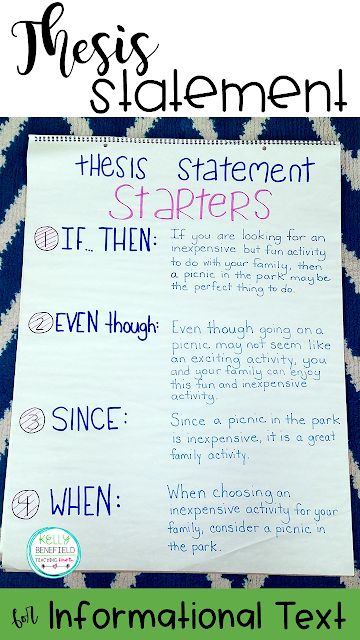 Thesis
Statement
thesis statement
starters
1 IF... THEN:
If you are looking for an
inexpensive but fun activity
to do with your family, then
a picnic in the park may be
the perfect thing to do.
2 EVEN though:
Even though going on a
picnic may not seem like
an exciting activity, you
and your family can enjoy
this fun and inexpensive
activity.
3 SINCE:
Since a picnic in the park
is inexpensive, it is a great
family activity.
4 WHEN:
When choosing an
inexpensive activity for your
family, consider a picnic in
the park.
KELLY
BENEFIELD
TEACHING
for Informational Text